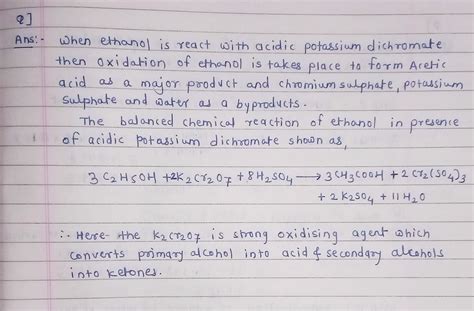 Q]
Ans:- When ethanol is react with acidic potassium dichromate
then oxidation of ethanol is takes place to form Acetic
acid as a major product and chromium sulphate, potassium
sulphate and water as a byproducts.
The balanced chemical reaction of ethanol in presence
of acidic potassium dichromate shown as,
3 C2H5OH + 2K2Cr2O7 + 8H2SO4 → 3CH3COOH + 2Cr2(SO4)3
+ 2K2SO4 + 11H2O
∴ Here the K2Cr2O7 is strong oxidising agent which
converts primary alcohol into acid & secondary alcohols
into ketones.